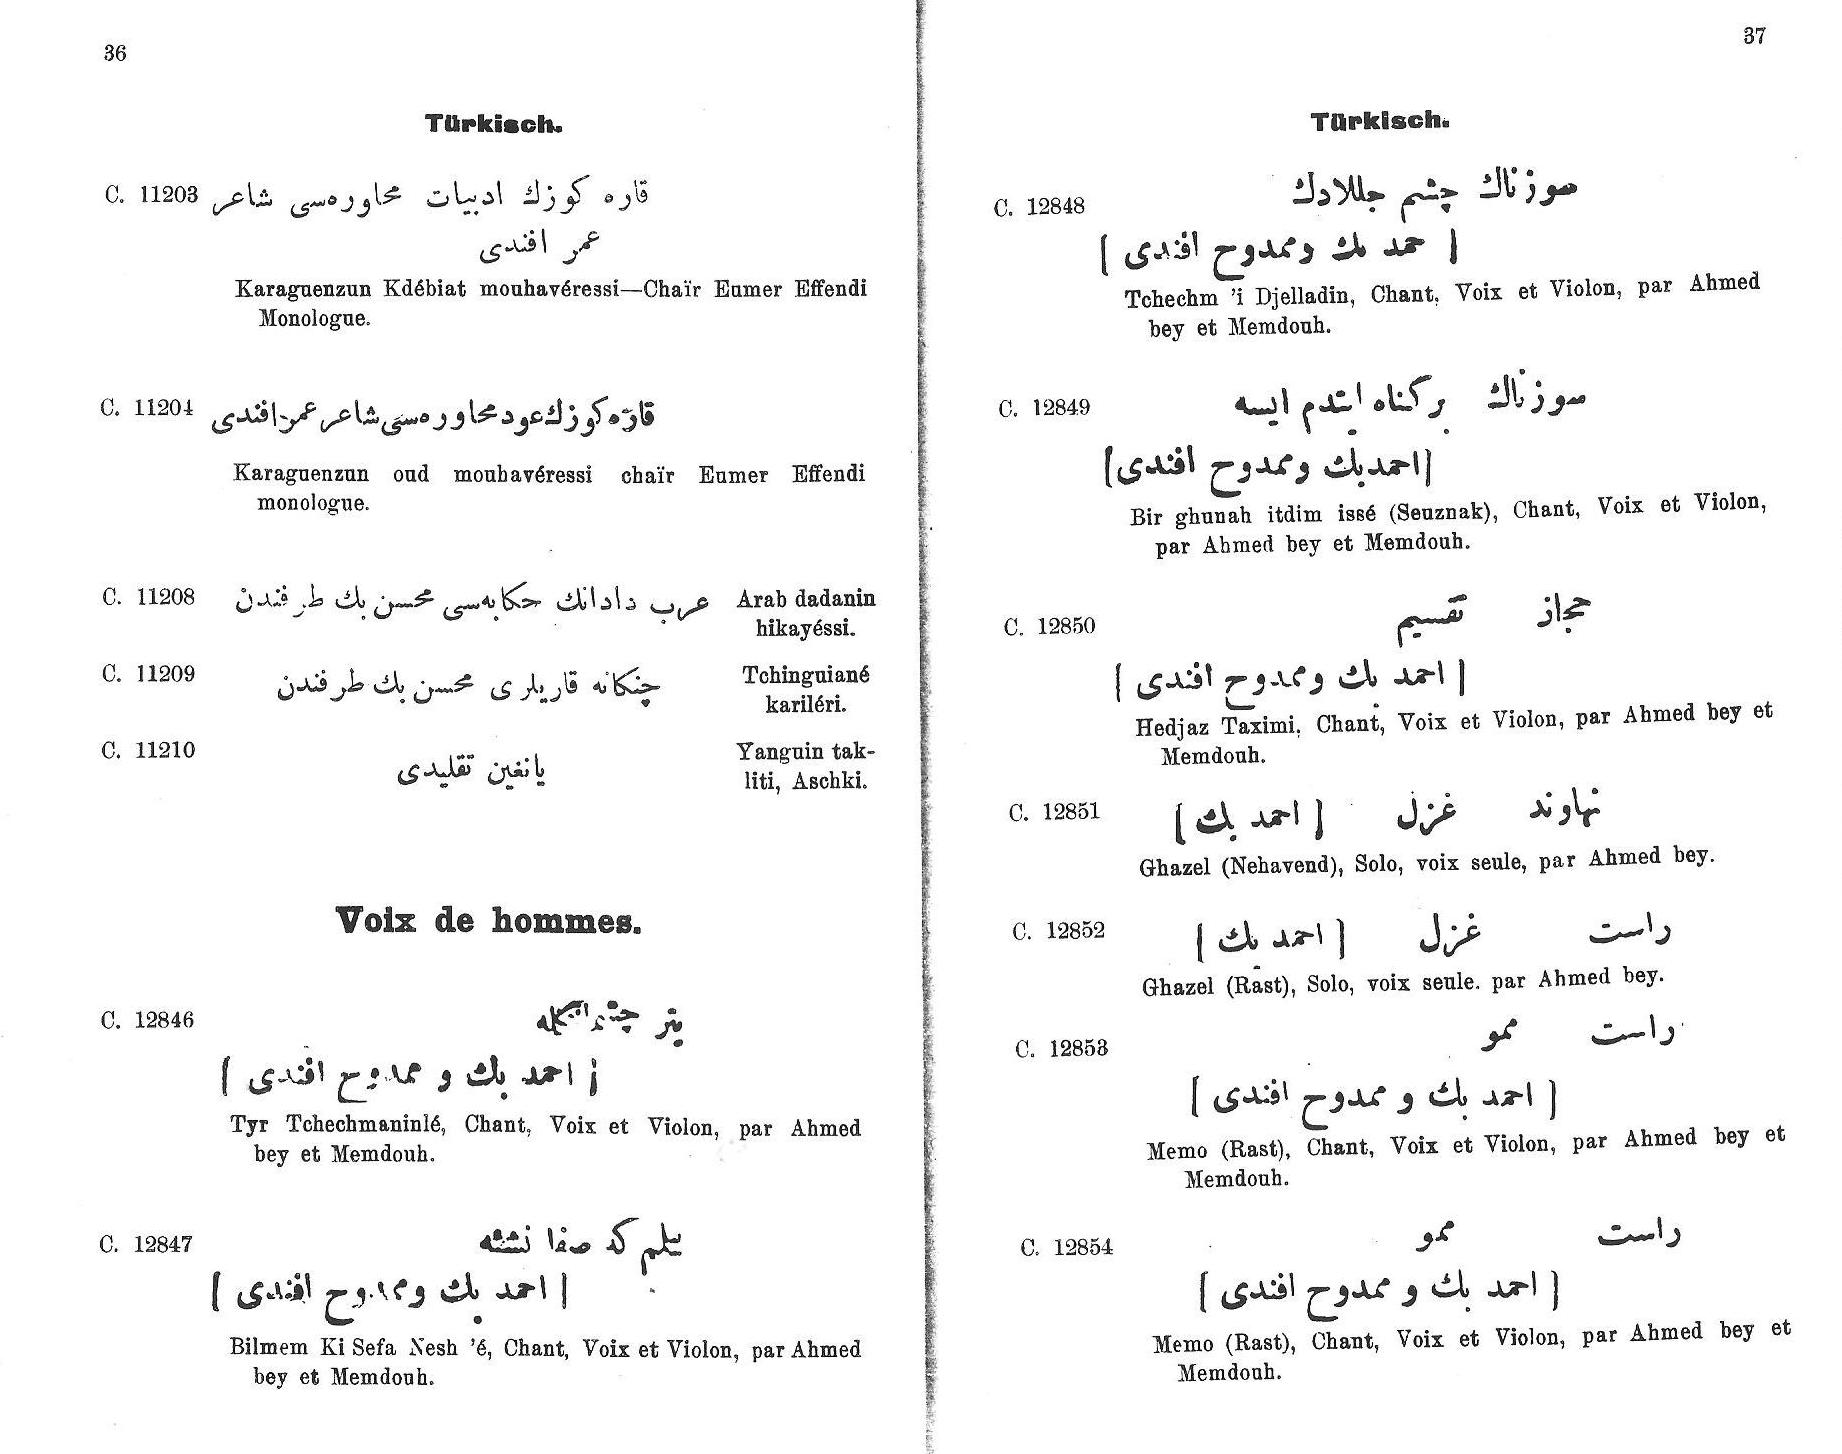 36
Türkisch.
C. 11203 قاره کوزك ادبیات محاوره‌سی شاعر
عمر افندی
Karaguenzun Kdébiat mouhavéressi—Chaïr Eumer Effendi
Monologue.
C. 11204 قاره کوزك عود محاوره‌سی شاعر عمر افندی
Karaguenzun oud mouhavéressi chaïr Eumer Effendi
monologue.
C. 11208 عرب دادانك حکایه‌سی محسن بك طرفندن Arab dadanin
hikayéssi.
C. 11209 چنکانه قاریلری محسن بك طرفندن Tchinguiané
kariléri.
C. 11210 یانغین تقلیدی Yanguin tak-
liti, Aschki.
Voix de hommes.
C. 12846
[ احمد بك و ممدوح افندی ]
Tyr Tchechmaninlé, Chant, Voix et Violon, par Ahmed
bey et Memdouh.
C. 12847 بیلم که صفا نشئه
[ احمد بك وممدوح افندی ]
Bilmem Ki Sefa Nesh 'é, Chant, Voix et Violon, par Ahmed
bey et Memdouh.
37
Türkisch.
C. 12848 سوزناك چشم جللادك
[ احمد بك وممدوح افندی ]
Tchechm 'i Djelladin, Chant, Voix et Violon, par Ahmed
bey et Memdouh.
C. 12849 سوزناك بر کناه ایتدم ایسه
[احمدبك وممدوح افندی]
Bir ghunah itdim issé (Seuznak), Chant, Voix et Violon,
par Ahmed bey et Memdouh.
C. 12850 حجاز تقسیم
[ احمد بك وممدوح افندی ]
Hedjaz Taximi, Chant, Voix et Violon, par Ahmed bey et
Memdouh.
C. 12851 نهاوند غزل [ احمد بك ]
Ghazel (Nehavend), Solo, voix seule, par Ahmed bey.
C. 12852 راست غزل [ احمد بك ]
Ghazel (Rast), Solo, voix seule. par Ahmed bey.
C. 12853 راست ممو
[ احمد بك و ممدوح افندی ]
Memo (Rast), Chant, Voix et Violon, par Ahmed bey et
Memdouh.
C. 12854 راست ممو
[ احمد بك و ممدوح افندی ]
Memo (Rast), Chant, Voix et Violon, par Ahmed bey et
Memdouh.